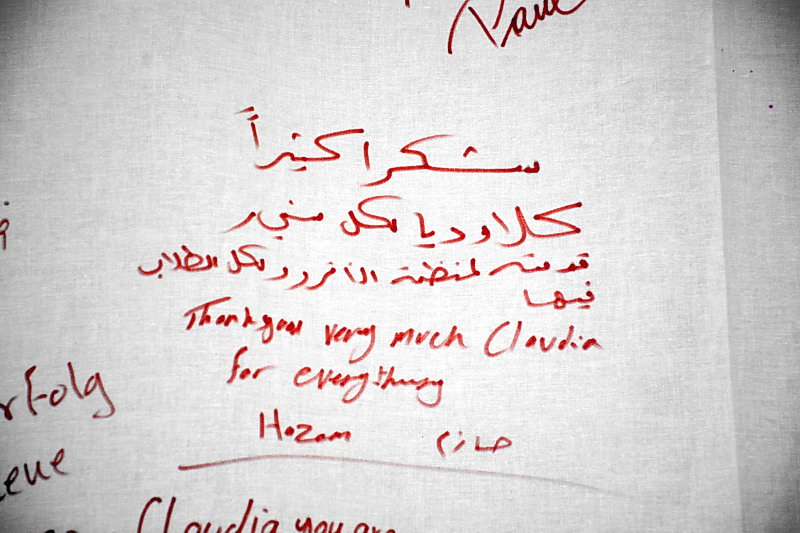 Paul
شكرا كثيراً
كلاوديا لكل شيء
قدمته لمنظمة لكل الطلاب
فيها
Thank you very much Claudia
for everything
Hazam حازم
rfolg
Claudia you are